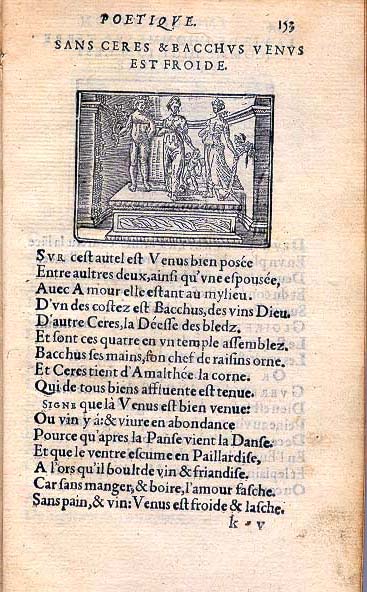 POETIQVE. 153
SANS CERES & BACCHVS VENVS
EST FROIDE.
SVR cest autel est Venus bien posée
Entre aultres deux, ainsi qu'vne espousée,
Auec Amour elle estant au mylieu.
D'vn des costez est Bacchus, des vins Dieu.
D'autre Ceres, la Déesse des bledz.
Et sont ces quatre en vn temple assemblez.
Bacchus ses mains, son chef de raisins orne.
Et Ceres tient d'Amalthée la corne.
Qui de tous biens affluente est tenue.
SIGNE que là Venus est bien venue:
Ou vin y á: & viure en abondance
Pource qu'apres la Panse vient la Danse.
Et que le ventre escume en Paillardise,
A l'ors qu'il boult de vin & friandise.
Car sans manger, & boire, l'amour fasche.
Sans pain, & vin: Venus est froide & lasche.
k v